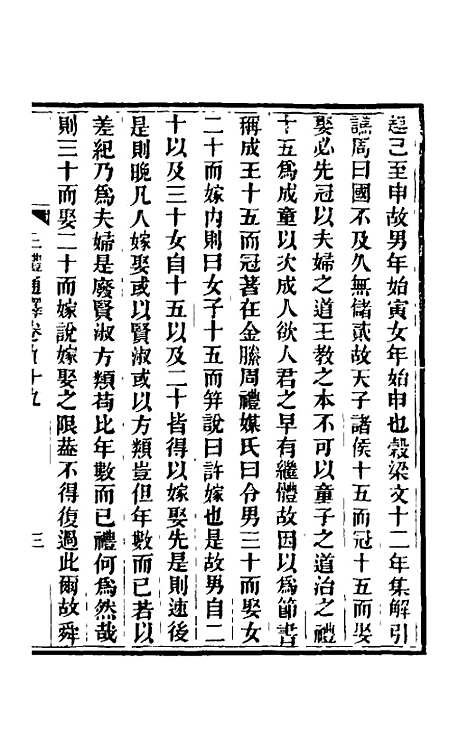 起己至申故男年始寅女年始申也穀梁文十二年集解引
譙周曰國不及久無儲貳故天子諸侯十五而冠十五而娶
娶必先冠以夫婦之道王教之本不可以童子之道治之禮
十五爲成童以次成人欲人君之早有繼體故因以爲節書
稱成王十五而冠著在金縢周禮媒氏曰令男三十而娶女
二十而嫁內則曰女子十五而筓說曰許嫁也是故男自二
十以及三十女自十五以及二十皆得以嫁娶先是則速後
是則晚凡人嫁娶或以賢淑或以方類豈但年數而已若以
差紀乃爲夫婦是廢賢淑方類苟比年數而已禮何爲然哉
則三十而娶二十而嫁說嫁娶之限葢不得復過此爾故舜
三禮通釋卷百十九 三